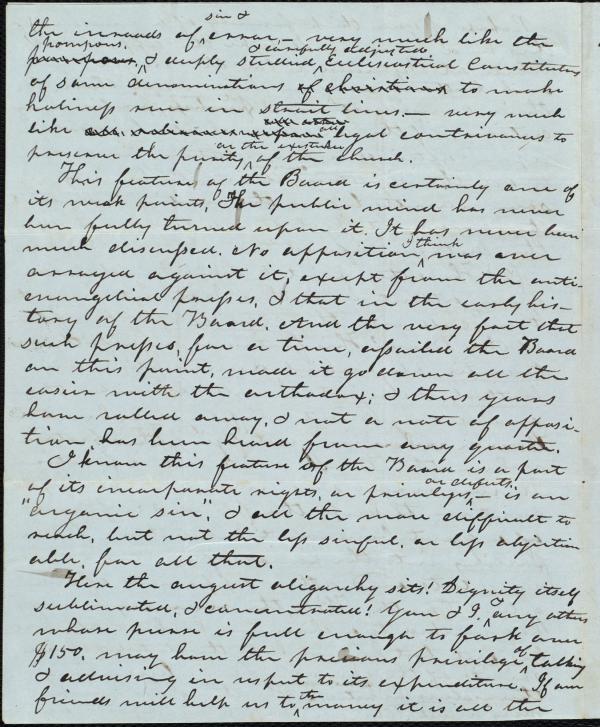 the inroads of sin & error,— very much like the
pompous, & deeply studied, & carefully adjusted Ecclesiastical Constitutions
of some denominations of christians to make
holiness run in strait lines,— very much
like all legal contrivances to
preserve the purity or the existence of the church.
This feature of the Board is certainly one of
its weak points, The public mind has never
been fully turned upon it. It has never been
much discussed. No opposition, I think was ever
arrayed against it, except from the anti-
evangelical presses, & that in the early his-
tory of the Board. And the very fact that
such presses, for a time, assailed the Board
on this point, made it go down all the
easier with the orthodox; & thus years
have rolled away, & not a note of opposi-
tion has been heard from any quarter.
I know this feature of the Board is a part
of its incorporate rights, or privileges, or defects,— is an
"organic sin", & all the more difficult to
reach, but not the less sinful, or less objection
able, for all that.
Here the august oligarchy sits! Dignity itself
sublimated, & concentrated! You & I, & any others
whose purse is full enough to fork over
$150. may have the precious privilege of talking
& advising in respect to its expenditure. If our
friends will help us to the money it is all the